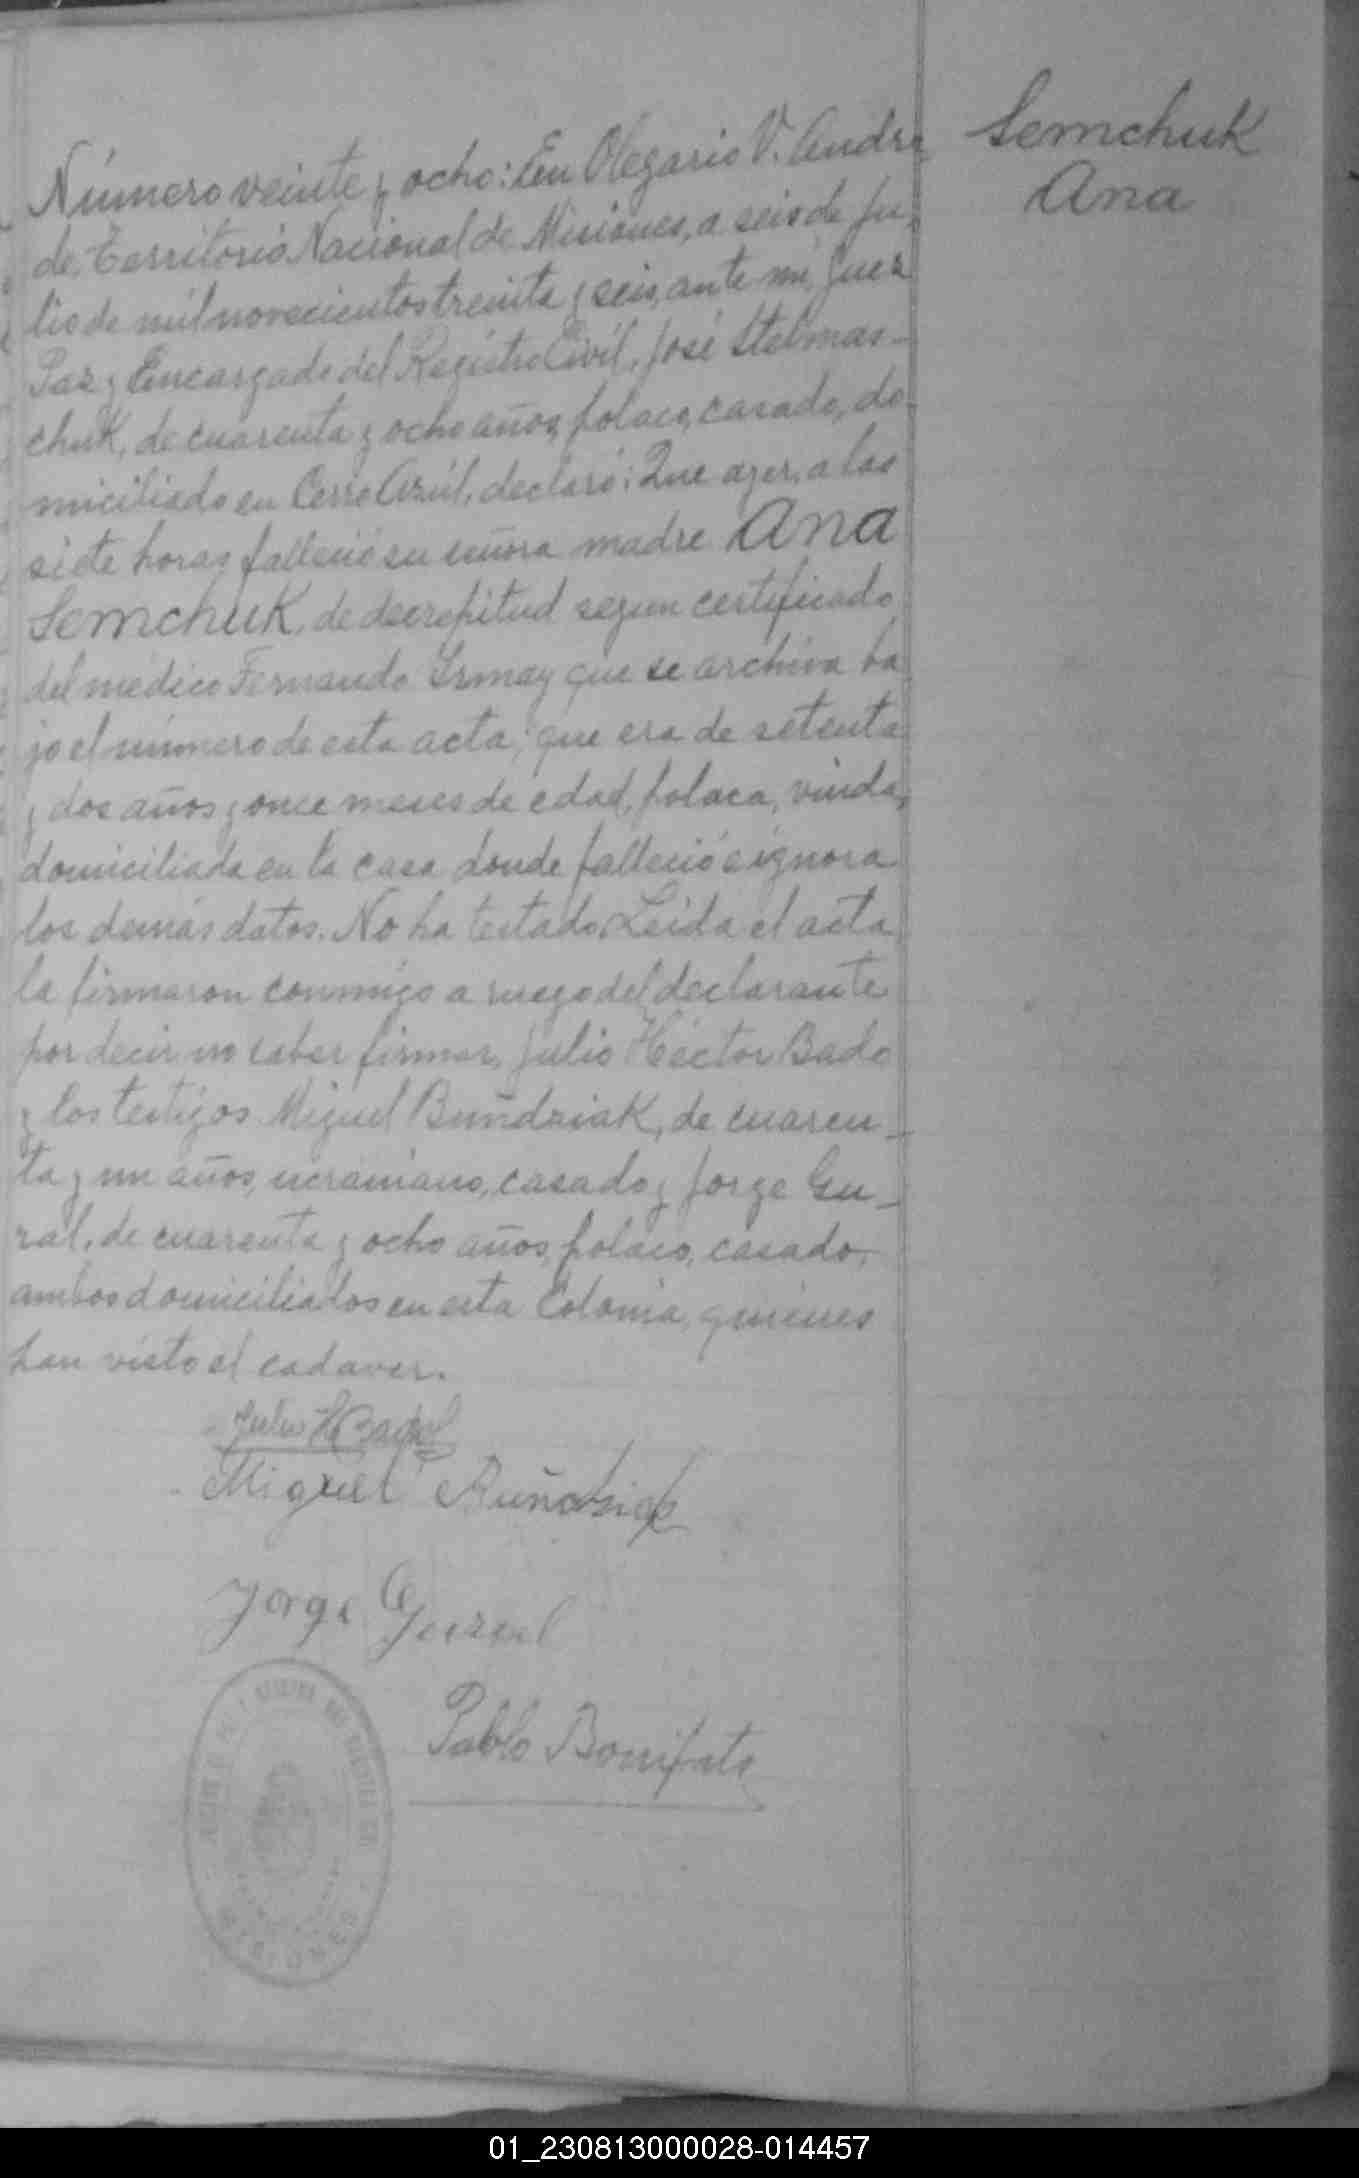 Semchuk
Ana
Número veinte y ocho: En Olegario V. Andra
de, Territorio Nacional de Misiones, a seis de Ju-
lio de mil novecientos treinta y seis, ante mi, Juez
Paz y Encargado del Registro Civil, José Stelmas-
chuk, de cuarenta y ocho años, polaco, casado, do-
miciliado en Cerro Azúl, declaró: Que ayer, a las
siete horas falleció su señora madre Ana
Semchuk, de decrepitud segun certificado
del médico Fernando Irmay que se archiva ba
jo el número de esta acta; que era de setenta
y dos años y once meses de edad, polaca, viuda,
domiciliada en la casa donde falleció é ignora
los demás datos. No ha testado. Leida el acta
la firmaron conmigo a ruego del declarante
por decir no saber firmar, Julio Héctor Bado
y los testigos Miguel Buñdziak, de cuaren-
ta y un años, ucraniano, casado y Jorge Gu-
ral, de cuarenta y ocho años, polaco, casado,
ambos domiciliados en esta Colonia, quienes
han visto el cadaver.
Julio H Bado
Miguel Buñdziak
Jorge Gural
Pablo Bonifato
MISIONES
01_230813000028-014457